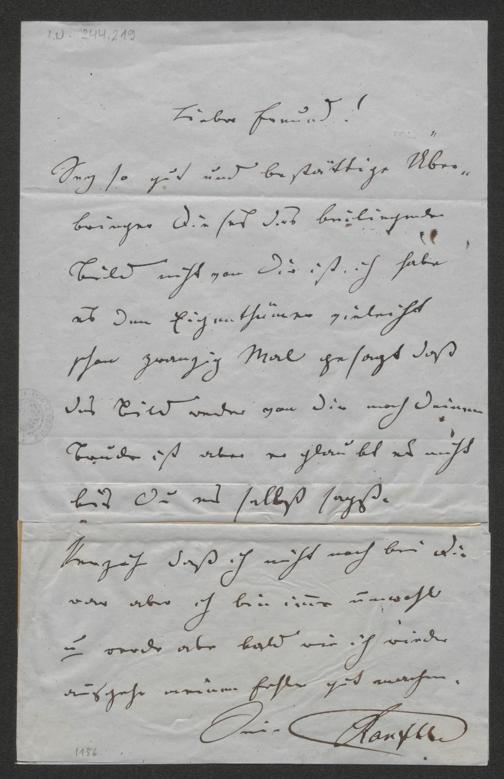 I.N. 244.219
Lieber Freund!
Sey so gut und bestättige Über-
bringer dieses das beiliegende
Bild nicht von Dir ist. ich habe
es dem Eigenthümer vieleicht
schon zwanzig Mal gesagt daß
das Bild weder von Dir noch Deinem
Brude ist aber er glaubt es nicht
bis Du es selbst sagst.
Verzeih daß ich nicht noch bei Dir
war aber ich bin immer unwohl
u werde aber bald wie ich wieder
ausgehe meinen Fehler gut machen.
Dein
1156